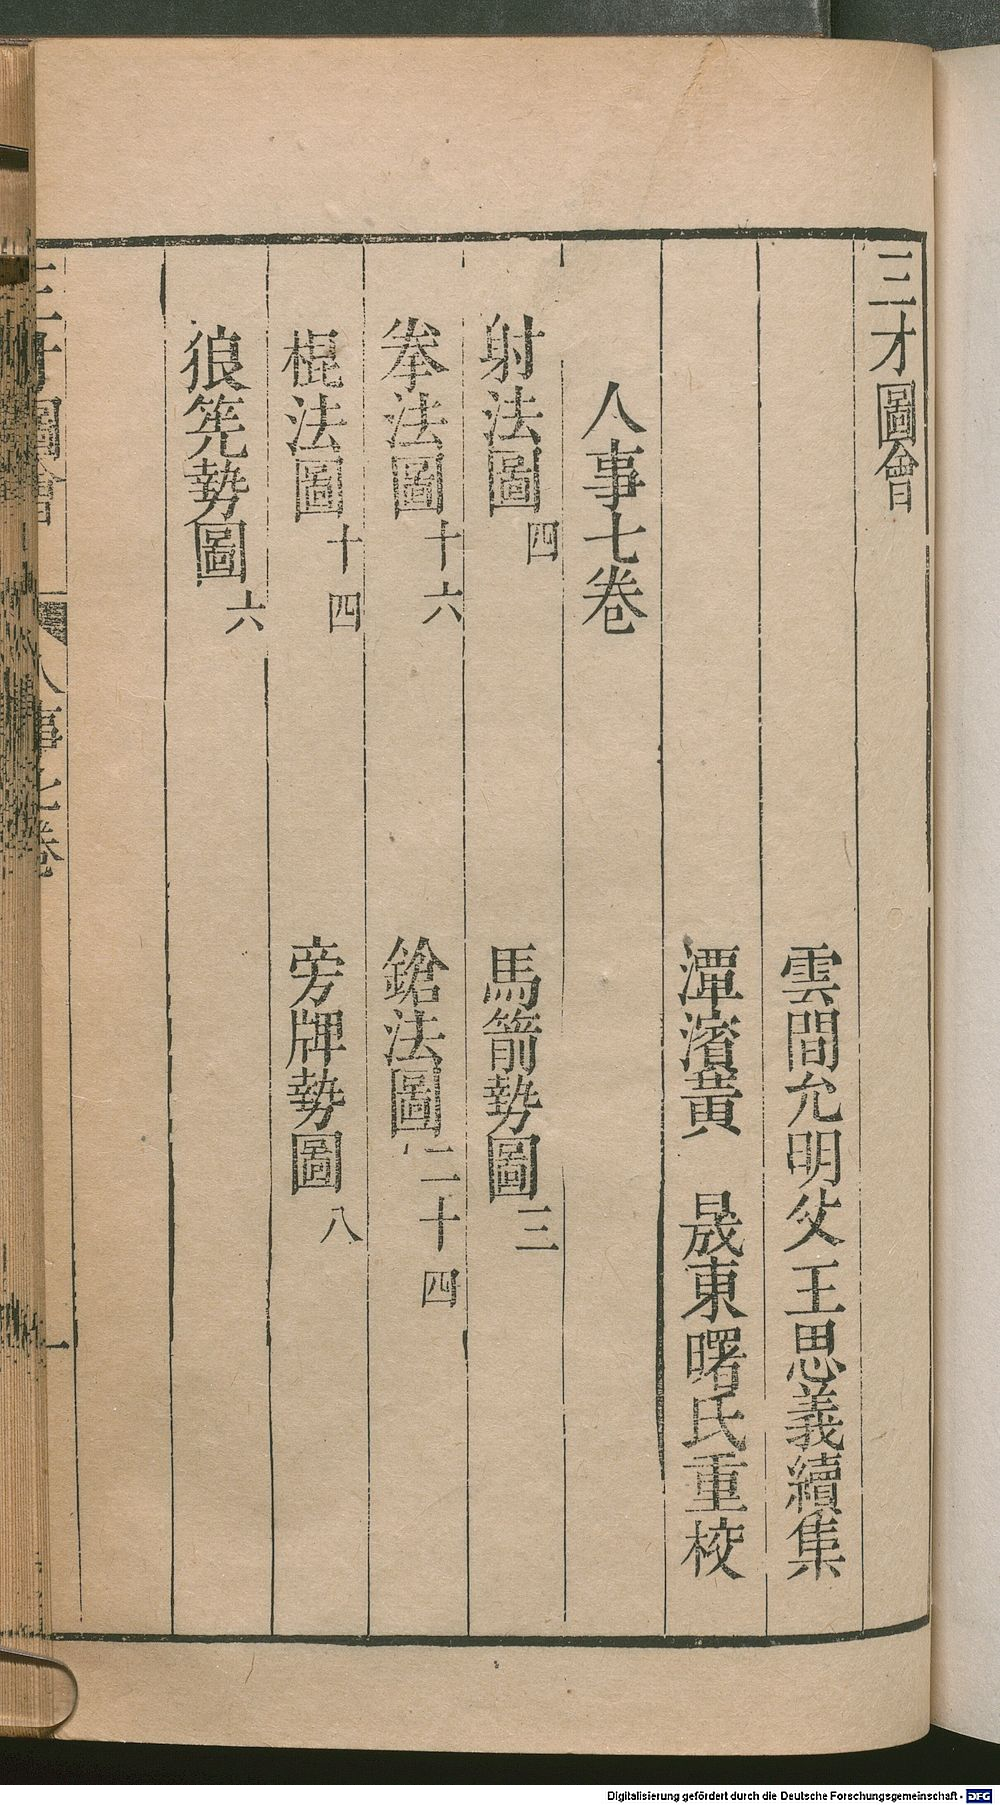 三才圖會
雲間允明父王思義續集
潭濱黃　晟東曙氏重校
人事七卷
射法圖四　馬箭勢圖三
拳法圖十六　鎗法圖二十四
棍法圖十四　旁牌勢圖八
狼筅勢圖六
三才圖會　人事七卷　一
Digitalisierung gefördert durch die Deutsche Forschungsgemeinschaft - DFG